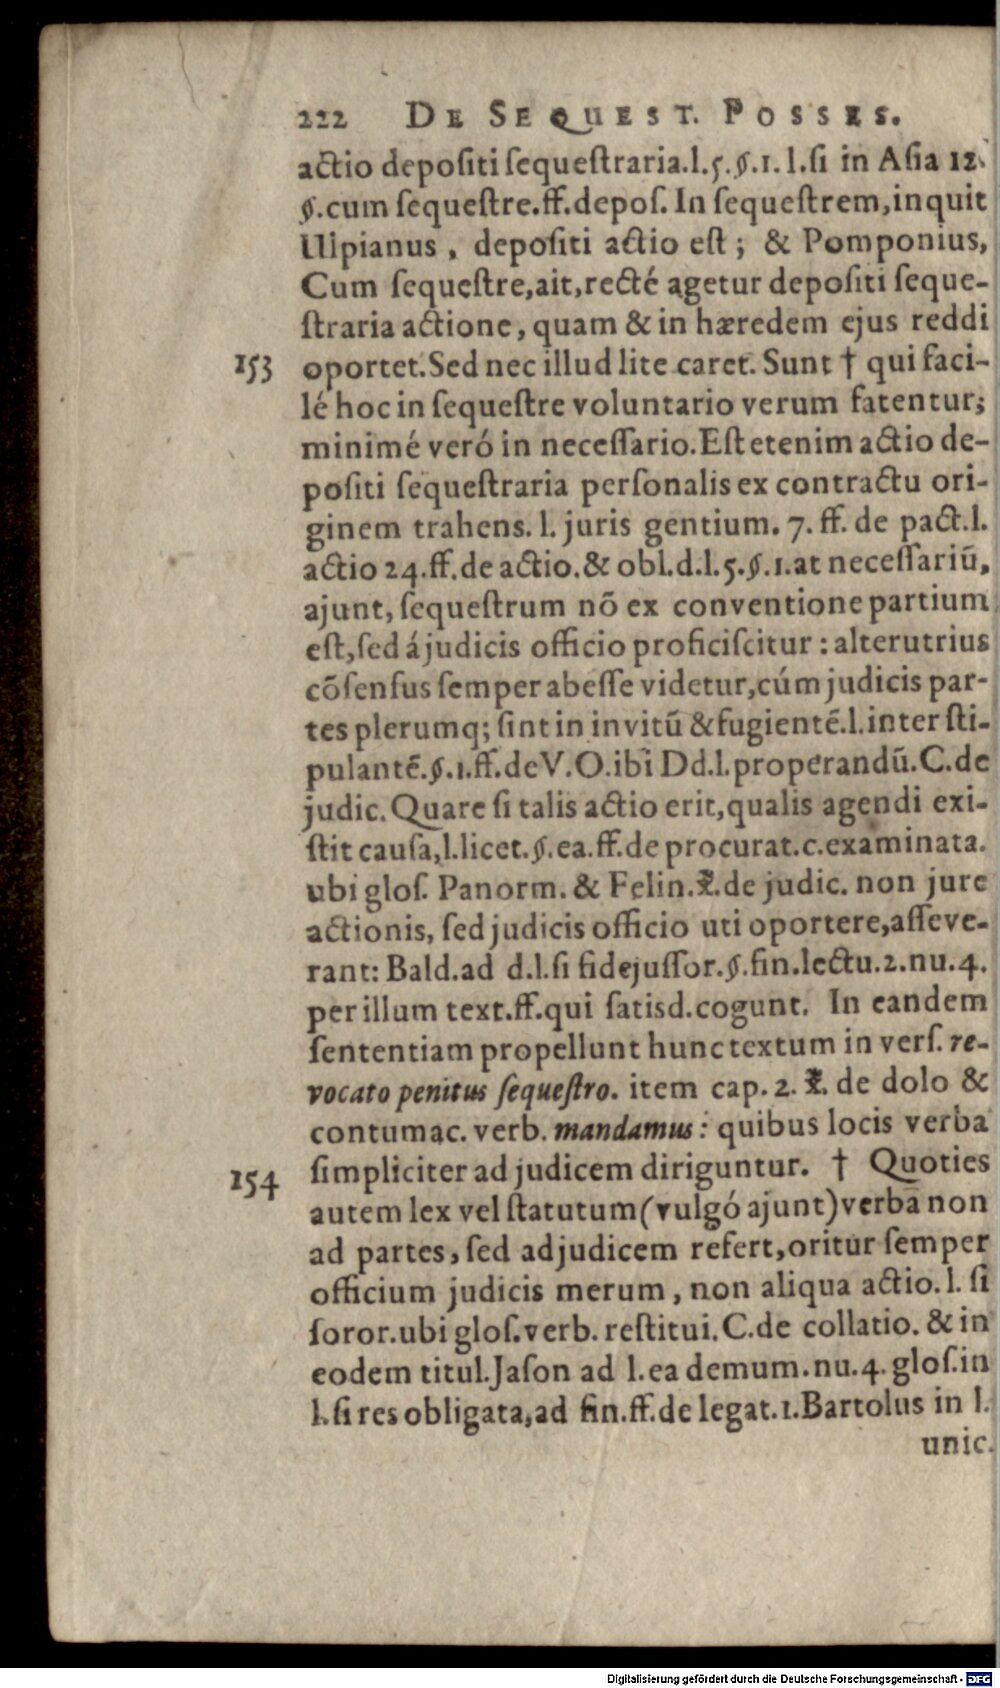 222 DE SEQUEST. POSSES.
actio depositi sequestraria.l.5.§.1.l.si in Asia 12.
§.cum sequestre.ff.depos. In sequestrem, inquit
Ulpianus, depositi actio est; & Pomponius,
Cum sequestre, ait, recté agetur depositi seque-
straria actione, quam & in hæredem ejus reddi
153 oportet. Sed nec illud lite caret. Sunt † qui faci-
lé hoc in sequestre voluntario verum fatentur;
minimé veró in necessario. Est etenim actio de-
positi sequestraria personalis ex contractu ori-
ginem trahens. l. juris gentium. 7. ff. de pact.l.
actio 24.ff.de actio.& obl.d.l.5.§.1.at necessariũ,
ajunt, sequestrum nõ ex conventione partium
est, sed á judicis officio proficiscitur: alterutrius
cõsensus semper abesse videtur, cúm judicis par-
tes plerumq; sint in invitũ & fugientẽ.l.inter sti-
pulantẽ.§.1.ff.de V.O.ibi Dd.l.properandũ.C.de
judic. Quare si talis actio erit, qualis agendi exi-
stit causa, l.licet.§.ea.ff.de procurat.c.examinata.
ubi glos. Panorm. & Felin.X.de judic. non jure
actionis, sed judicis officio uti oportere, asseve-
rant: Bald.ad d.l.si fidejussor.§.fin.lectu.2.nu.4.
per illum text.ff.qui satisd.cogunt. In eandem
sententiam propellunt hunc textum in vers. re-
vocato penitus sequestro. item cap. 2. X. de dolo &
contumac. verb. mandamus: quibus locis verba
154 simpliciter ad judicem diriguntur. † Quoties
autem lex vel statutum (vulgó ajunt) verba non
ad partes, sed ad judicem refert, oritur semper
officium judicis merum, non aliqua actio. l. si
soror.ubi glos.verb. restitui. C.de collatio. & in
eodem titul. Jason ad l.ea demum.nu.4. glos.in
l.si res obligata, ad fin.ff.de legat.1. Bartolus in l.
unic.
Digitalisierung gefördert durch die Deutsche Forschungsgemeinschaft - DFG